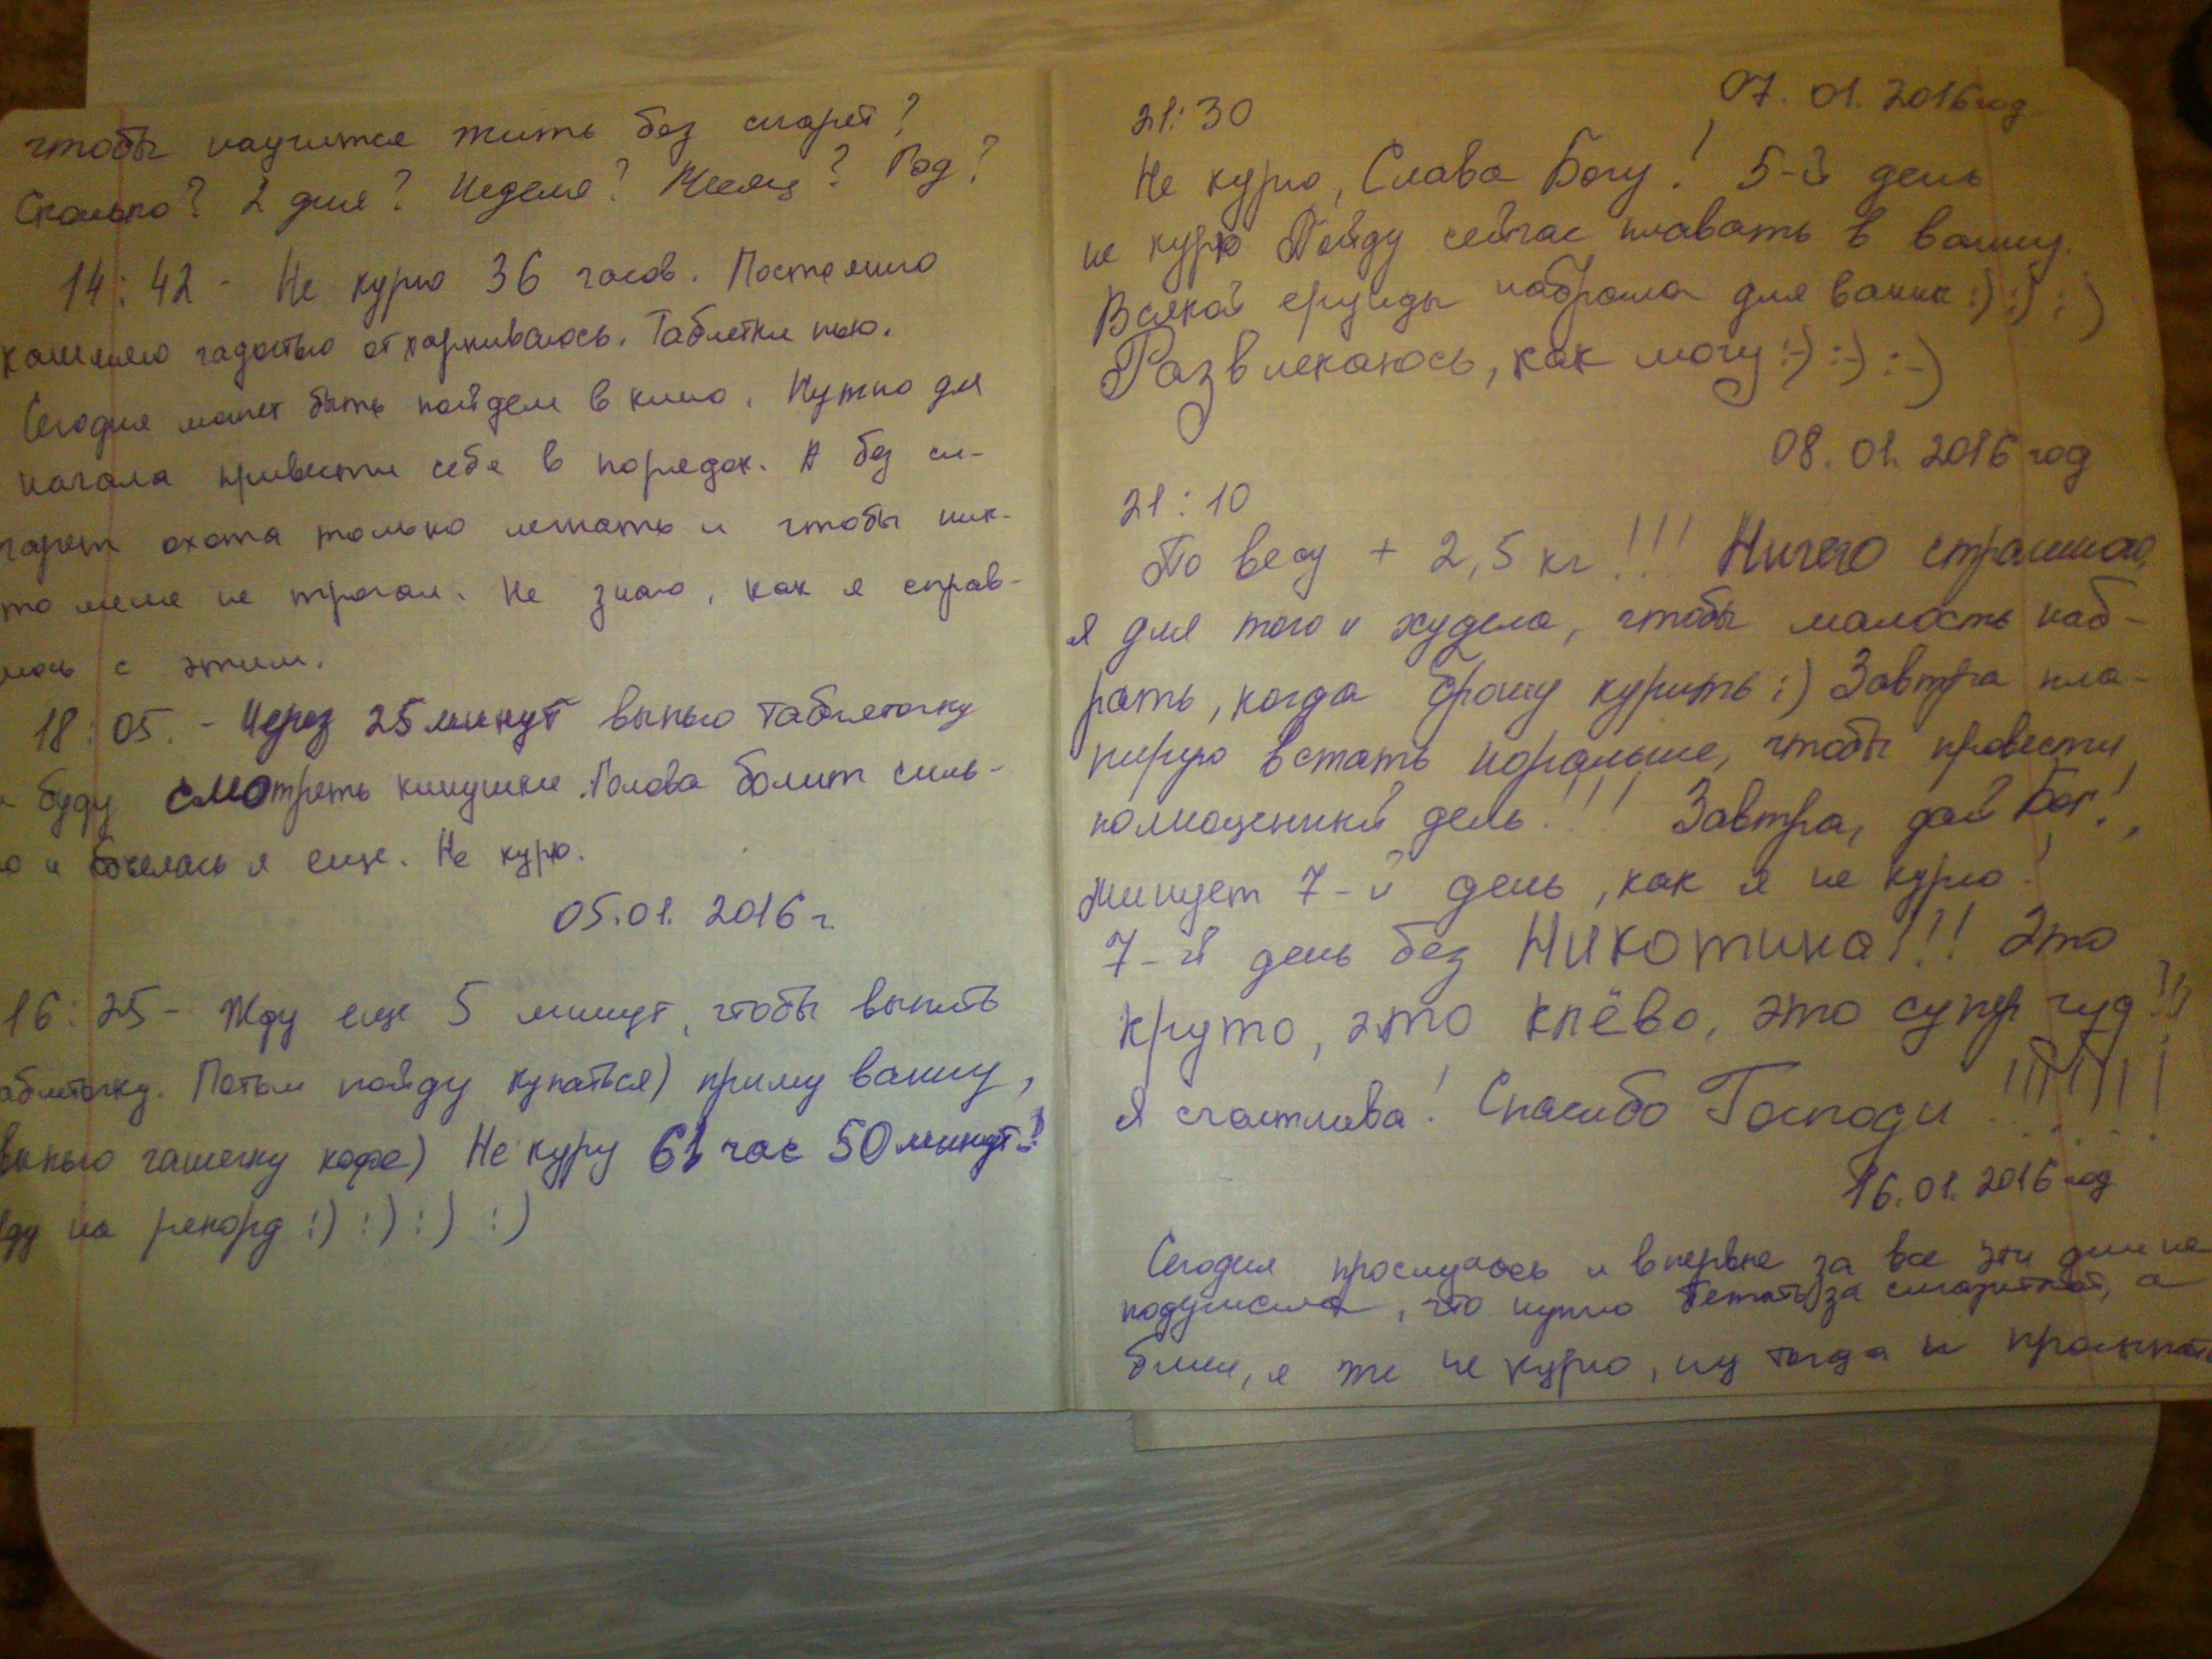 чтобы научится жить без сигарет?
Сколько? 2 дня? Неделя? Месяц? Год?
14:42 - Не курю 36 часов. Постоянно
кашляю гадостью отхаркиваюсь. Таблетки пью.
Сегодня может быть пойдем в кино. Нужно для
начала привести себя в порядок. А без си-
гарет охота только лежать и чтобы ник-
то меня не трогал. Не знаю, как я справ-
с этим.
18:05. - Через 25 минут выпью таблеточку
буду смотреть кинушки. Голова болит силь-
о и я еще. Не курю.
05.01.2016 г.
16:25 - Жду еще 5 минут, чтобы выпить
аблеточку. Потом пойду купаться) приму ванну,
выпью чашечку кофе) Не куру 61 час 50 минут!
ду на рекорд :) :) :) :)
07.01.2016 год
21:30
Не курю, Слава Богу! 5-й день
не курю. Пойду сейчас плавать в ванну.
Всякой ерунды набрала для ванны :) :) :)
Развлекаюсь, как могу :-) :-) :-)
08.01.2016 год
21:10
По весу + 2,5 кг!!! Ничего страшного,
я для того и худела, чтобы малость наб-
рать, когда брошу курить :) Завтра пла-
нирую встать пораньше, чтобы провести
полноценный день!!! Завтра, дай Бог!,
минует 7-й день, как я не курю!
7-й день без Никотина!!! Это
круто, это клёво, это супер чуд!!!
Я счастлива! Спасибо Господи !!!!!!!!
16.01.2016 год
Сегодня проснулась и впервые за все эти дни не
подумала, что нужно бежать за сигаретой, а
блин, я же не курю, ну тогда и